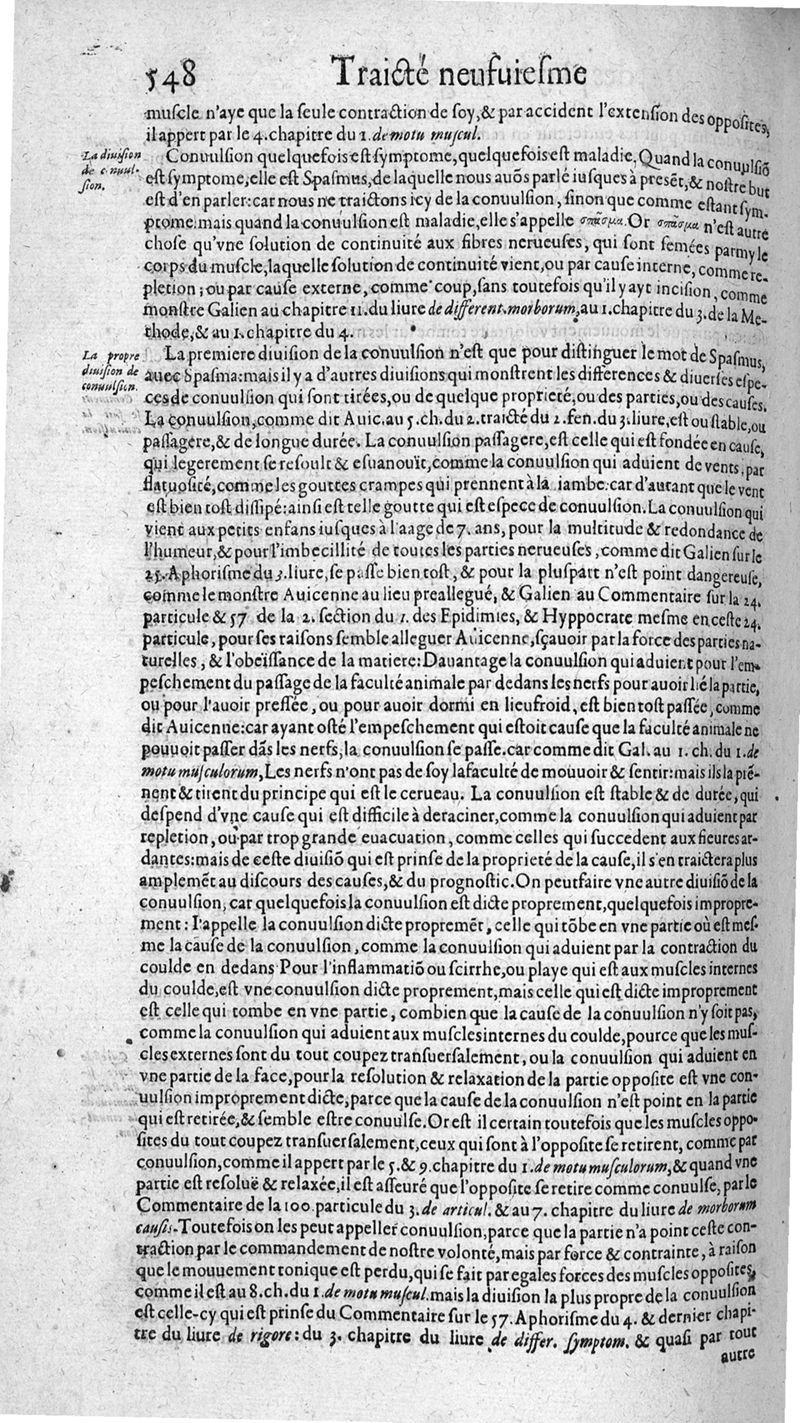 548 Traicté neufuiesme
muscle n'aye que la seule contraction de soy,& par accident l'extension des opposites,
il appert par le 4.chapitre du 1.de motu muscul.
La diuision
de conuul-
sion.
Conuulsion quelquefois est symptome,quelquefois est maladie,Quand la conuulsiõ
est symptome,elle est Spasmus,de laquelle nous auõs parlé iusques à presẽt,& nostre but
est d'en parler:car nous ne traictons icy de la conuulsion, sinon que comme estant sym-
ptome:mais quand la conuulsion est maladie,elle s'appelle σπάσμα.Or σπάσμα n'est autre
chose qu'vne solution de continuité aux fibres nerueuses, qui sont semées parmy le
corps du muscle,laquelle solution de continuité vient,ou par cause interne, comme re-
pletion ; ou par cause externe, comme coup, sans toutefois qu'il y ayt incision, comme
monstre Galien au chapitre 11.du liure de different.morborum,au 1.chapitre du 3.de la Me-
thode,& au 1.chapitre du 4.
La propre
diuision de
conuulsion.
La premiere diuision de la conuulsion n'est que pour distinguer le mot de Spasmus,
auec Spasma:mais il y a d'autres diuisions qui monstrent les differences & diuerses espe-
ces de conuulsion qui sont tirées,ou de quelque proprieté,ou des parties,ou des causes.
La conuulsion,comme dit Auic.au 5.ch.du 2.traicté du 2.fen.du 3.liure,est ou stable,ou
passagere,& de longue durée. La conuulsion passagere,est celle qui est fondée en cause,
qui legerement se resoult & esuanouït,comme la conuulsion qui aduient de vents,par
flatuosité,comme les gouttes crampes qui prennent à la iambe:car d'autant que le vent
est bien tost dissipé:ainsi est telle goutte qui est espece de conuulsion.La conuulsion qui
vient aux petits enfans iusques à l'aage de 7. ans, pour la multitude & redondance de
l'humeur,& pour l'imbecillité de toutes les parties nerueuses, comme dit Galien sur le
25.Aphorisme du 3.liure,se passe bien tost, & pour la pluspart n'est point dangereuse,
comme le monstre Auicenne au lieu preallegué, & Galien au Commentaire sur la 24.
particule & 57 de la 2. section du 1. des Epidimies, & Hyppocrate mesme en ceste 24.
particule, pour ses raisons semble alleguer Auicenne, sçauoir par la force des parties na-
turelles, & l'obeïssance de la matiere:Dauantage la conuulsion qui aduient pour l'em-
peschement du passage de la faculté animale par dedans les nerfs pour auoir lié la partie,
ou pour l'auoir pressée, ou pour auoir dormi en lieu froid, est bien tost passée, comme
dit Auicenne:car ayant osté l'empeschement qui estoit cause que la faculté animale ne
pouuoit passer dãs les nerfs, la conuulsion se passe.car comme dit Gal. au 1. ch. du 1.de
motu musculorum,Les nerfs n'ont pas de soy la faculté de mouuoir & sentir:mais ils la prẽ-
nent & tirent du principe qui est le cerueau. La conuulsion est stable & de durée, qui
despend d'vne cause qui est difficile à deraciner,comme la conuulsion qui aduient par
repletion, ou par trop grande euacuation, comme celles qui succedent aux fieures ar-
dantes:mais de ceste diuisiõ qui est prinse de la proprieté de la cause,il s'en traictera plus
amplemẽt au discours des causes,& du prognostic.On peut faire vne autre diuisiõ de la
conuulsion, car quelquefois la conuulsion est dicte proprement,quelquefois impropre-
ment : I'appelle la conuulsion dicte propremẽt, celle qui tõbe en vne partie où est mes-
me la cause de la conuulsion, comme la conuulsion qui aduient par la contraction du
coulde en dedans Pour l'inflammatiõ ou scirrhe,ou playe qui est aux muscles internes
du coulde,est vne conuulsion dicte proprement,mais celle qui est dicte improprement
est celle qui tombe en vne partie, combien que la cause de la conuulsion n'y soit pas,
comme la conuulsion qui aduient aux muscles internes du coulde,pource que les mus-
cles externes sont du tout coupez transuersalement, ou la conuulsion qui aduient en
vne partie de la face,pour la resolution & relaxation de la partie opposite est vne con-
uulsion improprement dicte,parce que la cause de la conuulsion n'est point en la partie
qui est retirée,& semble estre conuulse.Or est il certain toutefois que les muscles oppo-
sites du tout coupez transuersalement,ceux qui sont à l'opposite se retirent, comme par
conuulsion,comme il appert par le 5.& 9.chapitre du 1.de motu musculorum,& quand vne
partie est resoluë & relaxée,il est asseuré que l'opposite se retire comme conuulse, par le
Commentaire de la 100.particule du 3.de articul.& au 7. chapitre du liure de morborum
causis.Toutefois on les peut appeller conuulsion,parce que la partie n'a point ceste con-
traction par le commandement de nostre volonté,mais par force & contrainte, à raison
que le mouuement tonique est perdu,qui se fait par egales forces des muscles opposites,
comme il est au 8.ch.du 1.de motu muscul.mais la diuision la plus propre de la conuulsion
est celle-cy qui est prinse du Commentaire sur le 57.Aphorisme du 4. & dernier chapi-
tre du liure de rigore: du 3. chapitre du liure de differ. symptom. & quasi par tout
autre